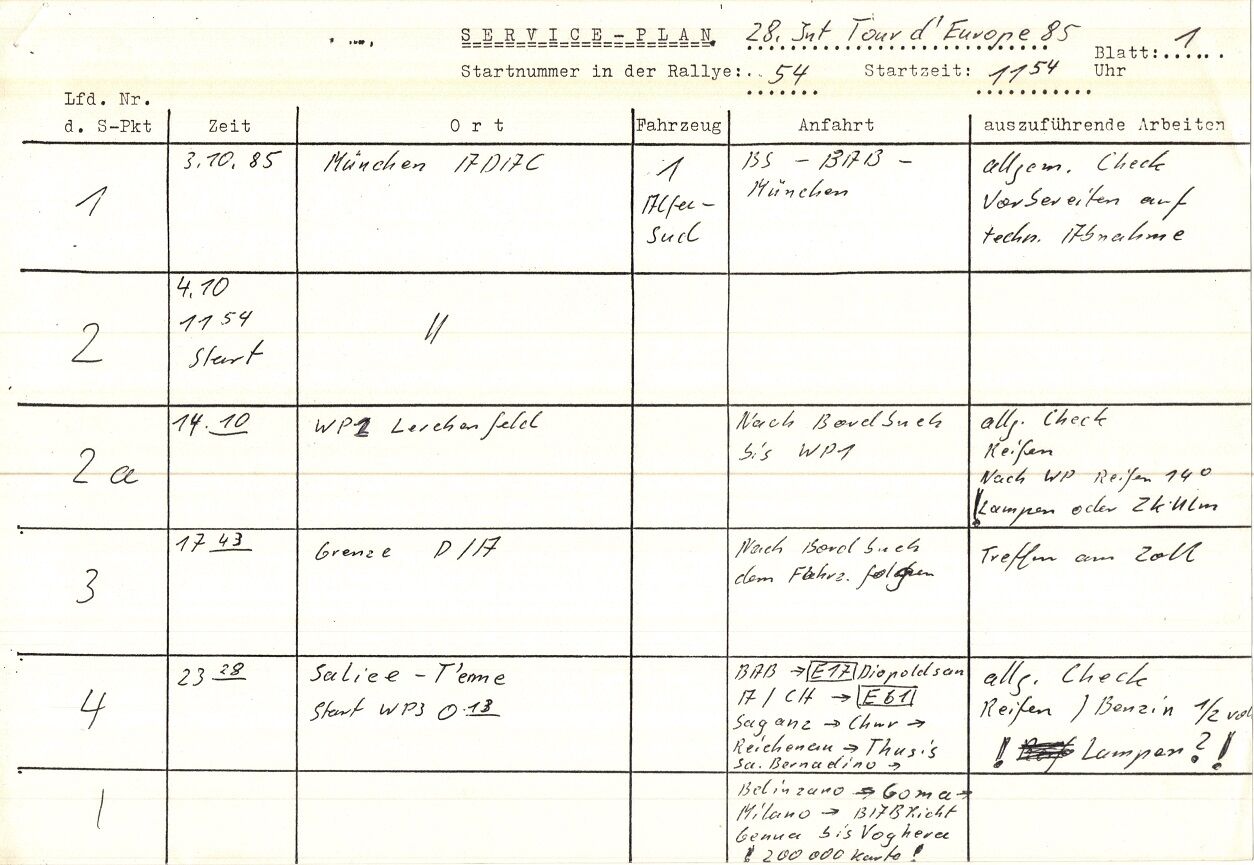 SERVICE-PLAN 28. Int Tour d'Europe 85
Blatt: 1
Startnummer in der Rallye: 54 Startzeit: 11 54 Uhr
Lfd. Nr.
d. S-Pkt Zeit Ort Fahrzeug Anfahrt auszuführende Arbeiten
1
3.10.85
München ADAC
1
Alfa-
Sud
BS - BAB -
München
allgem. Check
Vorbereiten auf
techn. Abnahme
2
4.10
11 54
Start
"
2 a
14.10
WP1 Lerchenfeld
Nach Bordbuch
bis WP1
allg. Check
Reifen
Nach WP Reifen 140
! Lampen oder
3
17 43
Grenze D/A
Nach Bordbuch
dem Fahrz. folgen
Treffen am Zoll
4
23 28
Salice - Terme
Start WP3 0.13
BAB → E17 Diopoldsau
A / CH → E61
Saganz → Chur →
Reichenau → Thusis
Sa. Bernadino →
allg. Check
Reifen / Benzin 1/2 voll
! Lampen? !
|
Belinzano → Coma →
Milano → BAB Richt
Genua bis Voghera
! 200 000 Karte !